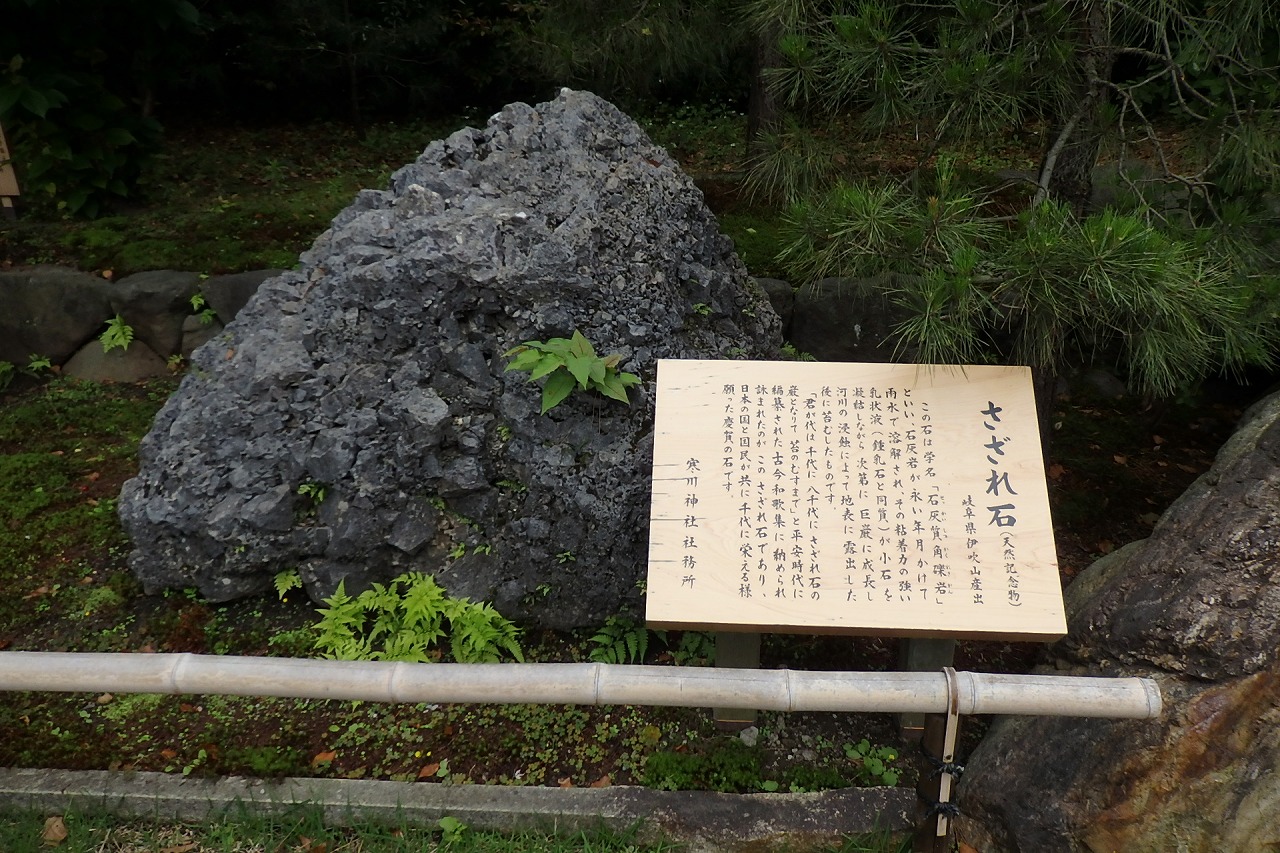 さざれ石（天然記念物）
岐阜県伊吹山産出
この石は学名「石灰質角礫岩」
といい 石灰岩が永い年月かけて
雨水で溶解され その粘着力の強い
乳状液（鍾乳石と同質）が小石を
凝結しながら 次第に巨巌に成長し
河川の浸蝕によって地表に露出した
後に苔むしたものです。
「君が代は千代に八千代にさざれ石の
巌となりて苔のむすまで」と平安時代に
編纂された古今和歌集に納められ
詠まれたのがこのさざれ石であり、
日本の国と国民が共に千代に栄える様
願った慶賀の石です。
寒川神社社務所